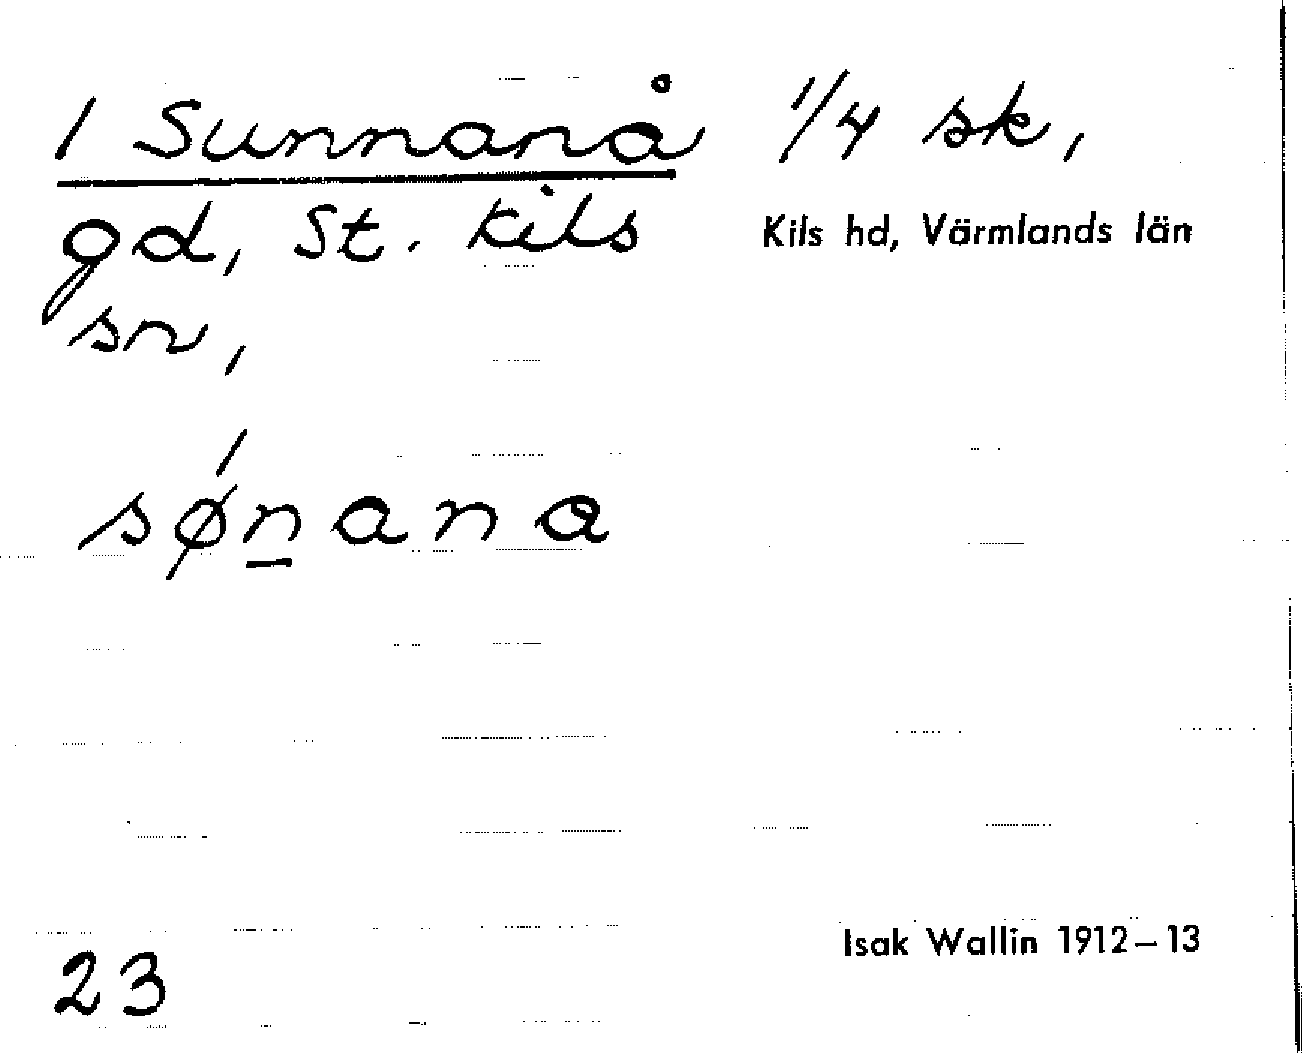 1 Sunnanå 1/4 sk,
gd, St. Kils Kils hd, Värmlands län
sn,
sǿn̲ana
23
Isak Wallin 1912–13